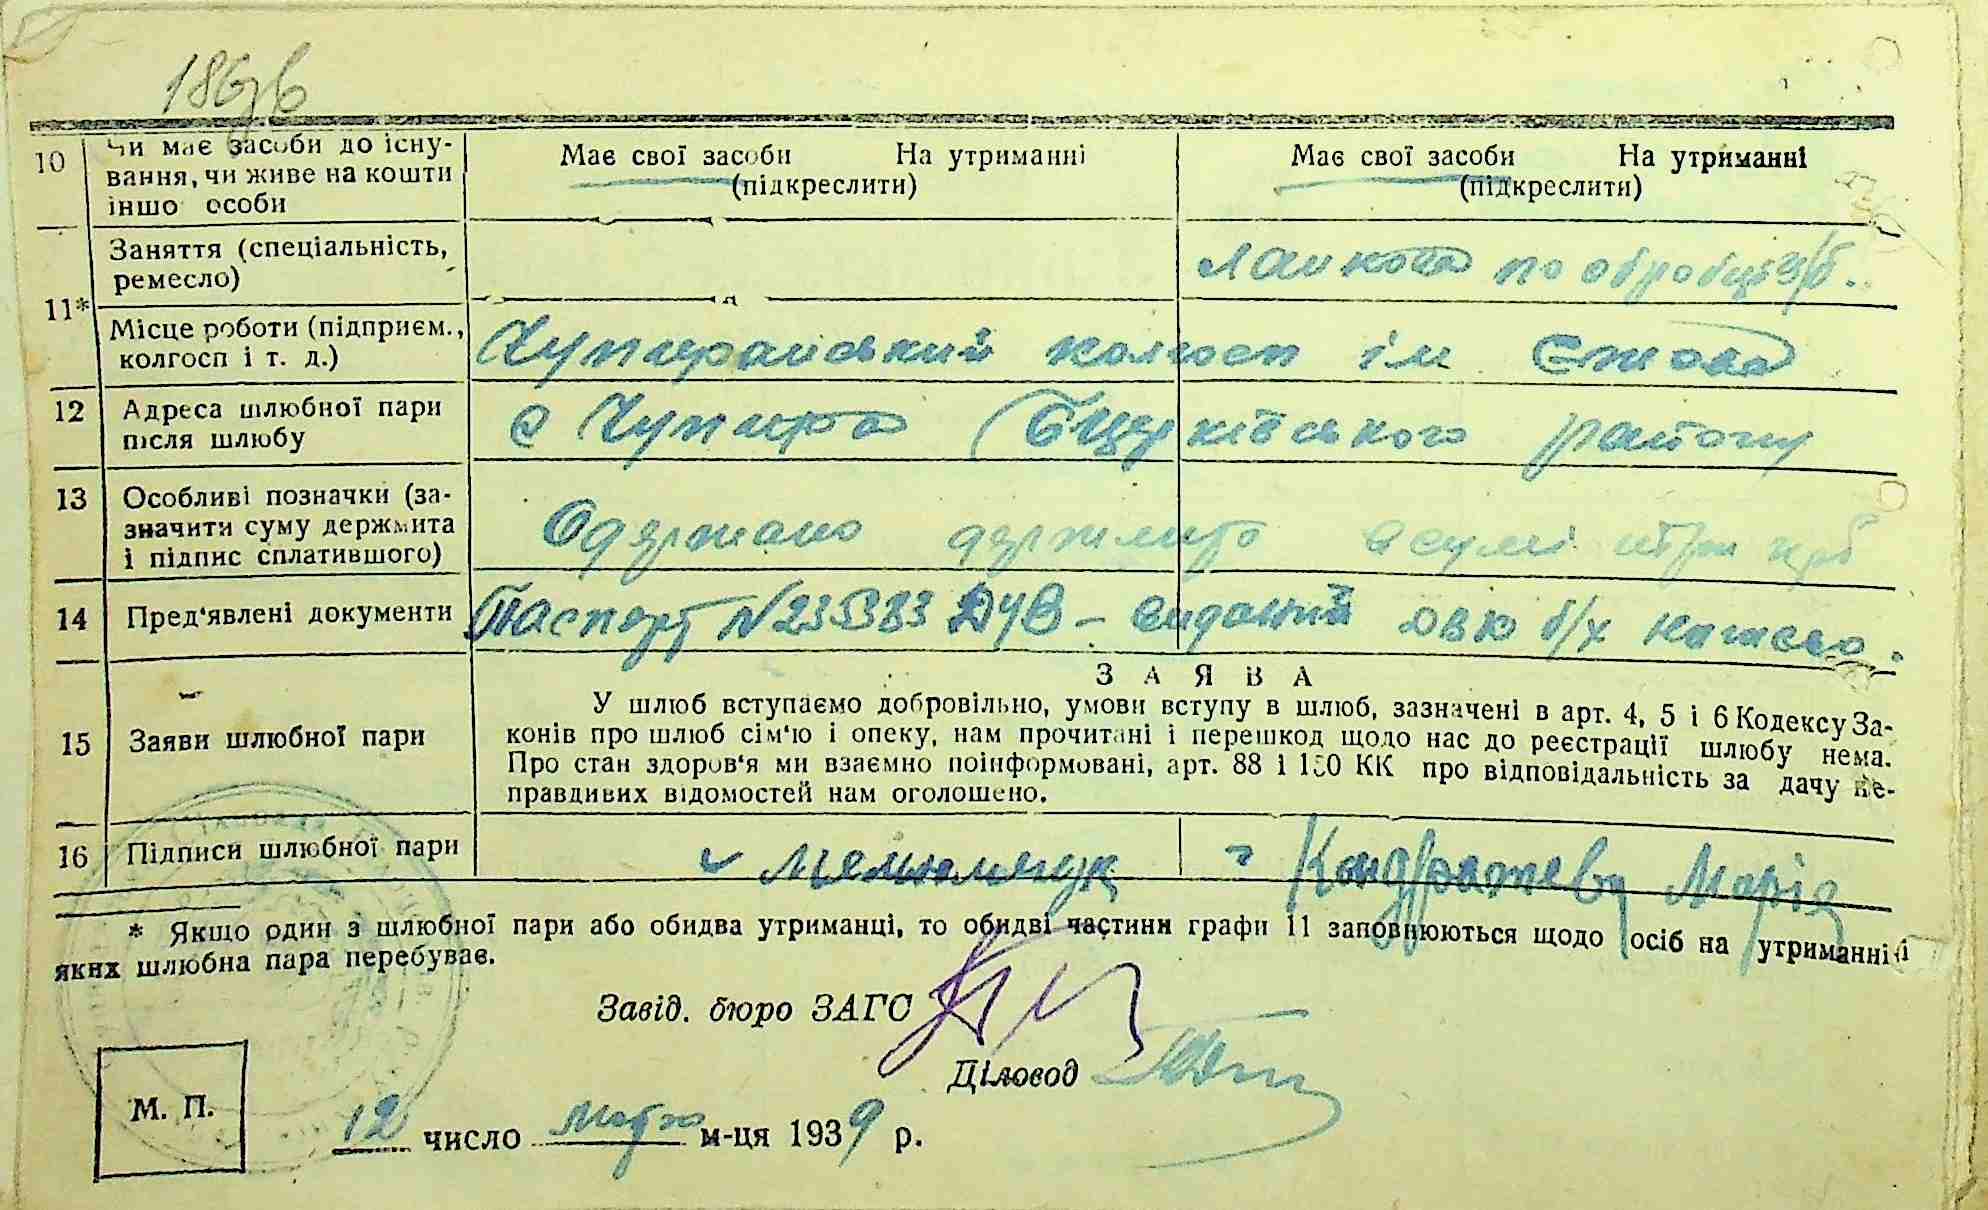 10 Чи має засоби до існу- Має свої засоби На утриманні Має свої засоби На утриманні
вання, чи живе на кошти (підкреслити) (підкреслити)
іншо особи
Заняття (спеціальність,
ремесло) Ланкова по обробці з/б.
11*
Місце роботи (підприєм., Чупирський колгосп ім Єжова
колгосп і т. д.)
12 Адреса шлюбної пари с Чупира Б Церківського району
після шлюбу
13 Особливі позначки (за-
значити суму держмита Одержано держмито в сумі три крб
і підпис сплатившого)
14 Пред'явлені документи Паспорт № 235383 - виданий б/ц
З А Я В А
У шлюб вступаємо добровільно, умови вступу в шлюб, зазначені в арт. 4, 5 і 6 Кодексу За-
15 Заяви шлюбної пари конів про шлюб сім'ю і опеку, нам прочитані і перешкод щодо нас до реєстрації шлюбу нема.
Про стан здоров'я ми взаємно поінформовані, арт. 88 і 150 КК про відповідальність за дачу не-
правдивих відомостей нам оголошено.
16 Підписи шлюбної пари Кондратева Марія
* Якщо один з шлюбної пари або обидва утриманці, то обидві частини графи 11 заповнюються щодо осіб на утриманні
яких шлюбна пара перебуває.
Завід. бюро ЗАГС
Діловод
М. П.
12 число м-ця 1939 р.